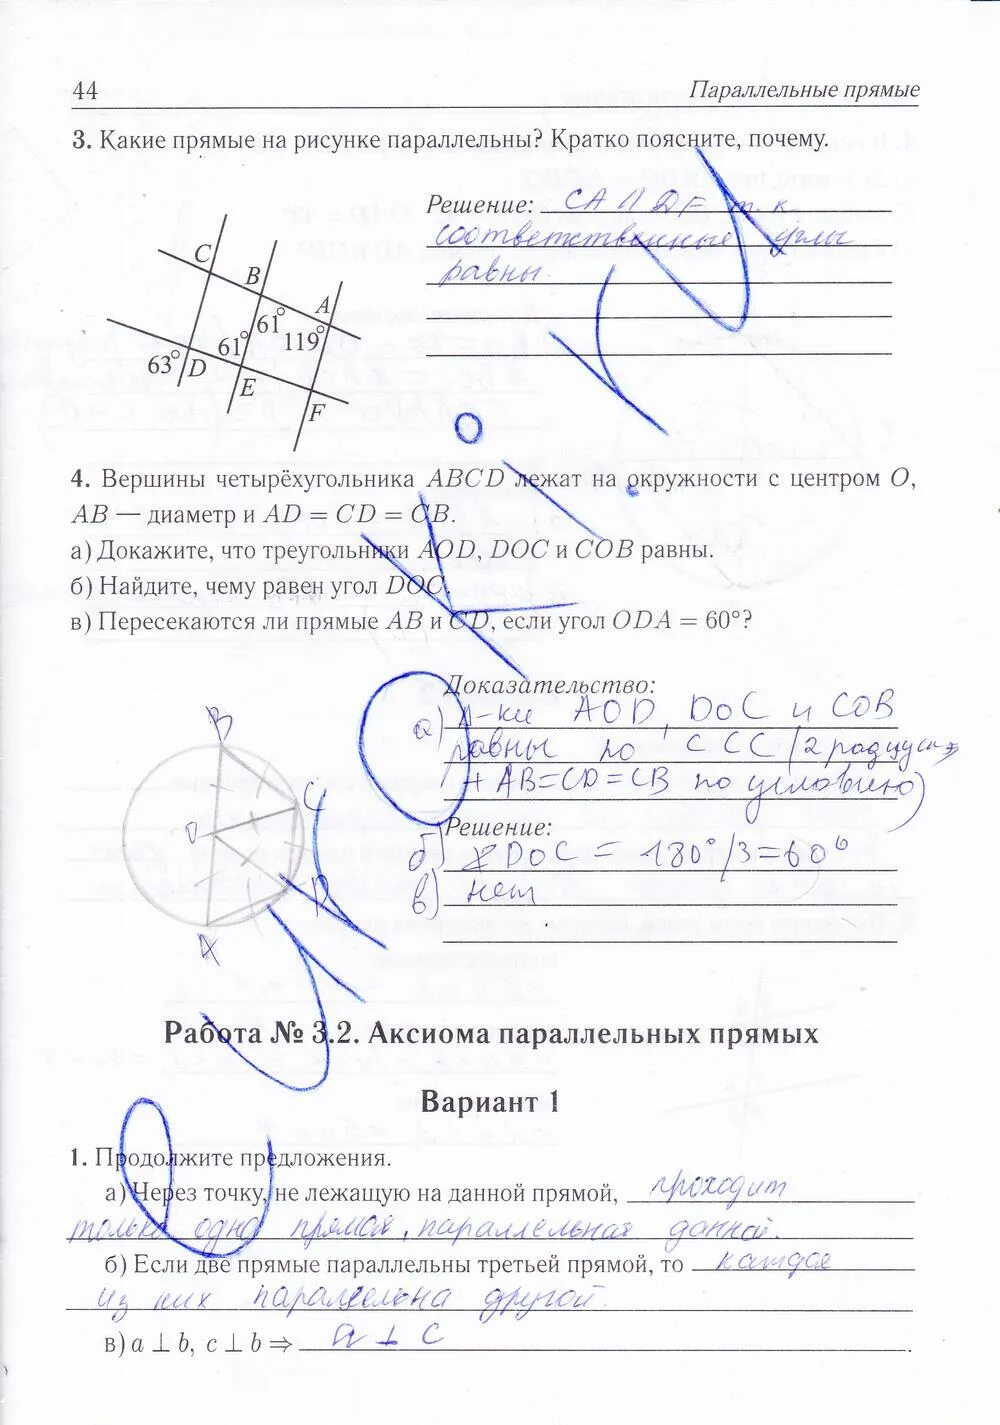 44
Параллельные прямые
3. Какие прямые на рисунке параллельны? Кратко поясните, почему.
Решение: CA || DF т. к
соответственные углы
равны.
C
B
A
61°
61°
119°
63°
D
E
F
4. Вершины четырёхугольника ABCD лежат на окружности с центром O,
AB — диаметр и AD = CD = CB.
а) Докажите, что треугольники AOD, DOC и COB равны.
б) Найдите, чему равен угол DOC.
в) Пересекаются ли прямые AB и CD, если угол ODA = 60°?
Доказательство:
а) Δ-ки AOD, DOC и COB
равны по ССС (2 радиуса
+ AB=CD=CB по условию)
Решение:
б) ∠DOC = 180°/3=60°
в) нет
B
C
O
D
A
Работа № 3.2. Аксиома параллельных прямых
Вариант 1
1. Продолжите предложения.
а) Через точку, не лежащую на данной прямой, проходит
только одна прямая, параллельная данной.
б) Если две прямые параллельны третьей прямой, то каждая
из них параллельна другой.
в) a ⊥ b, c ⊥ b ⇒ a ⊥ c.